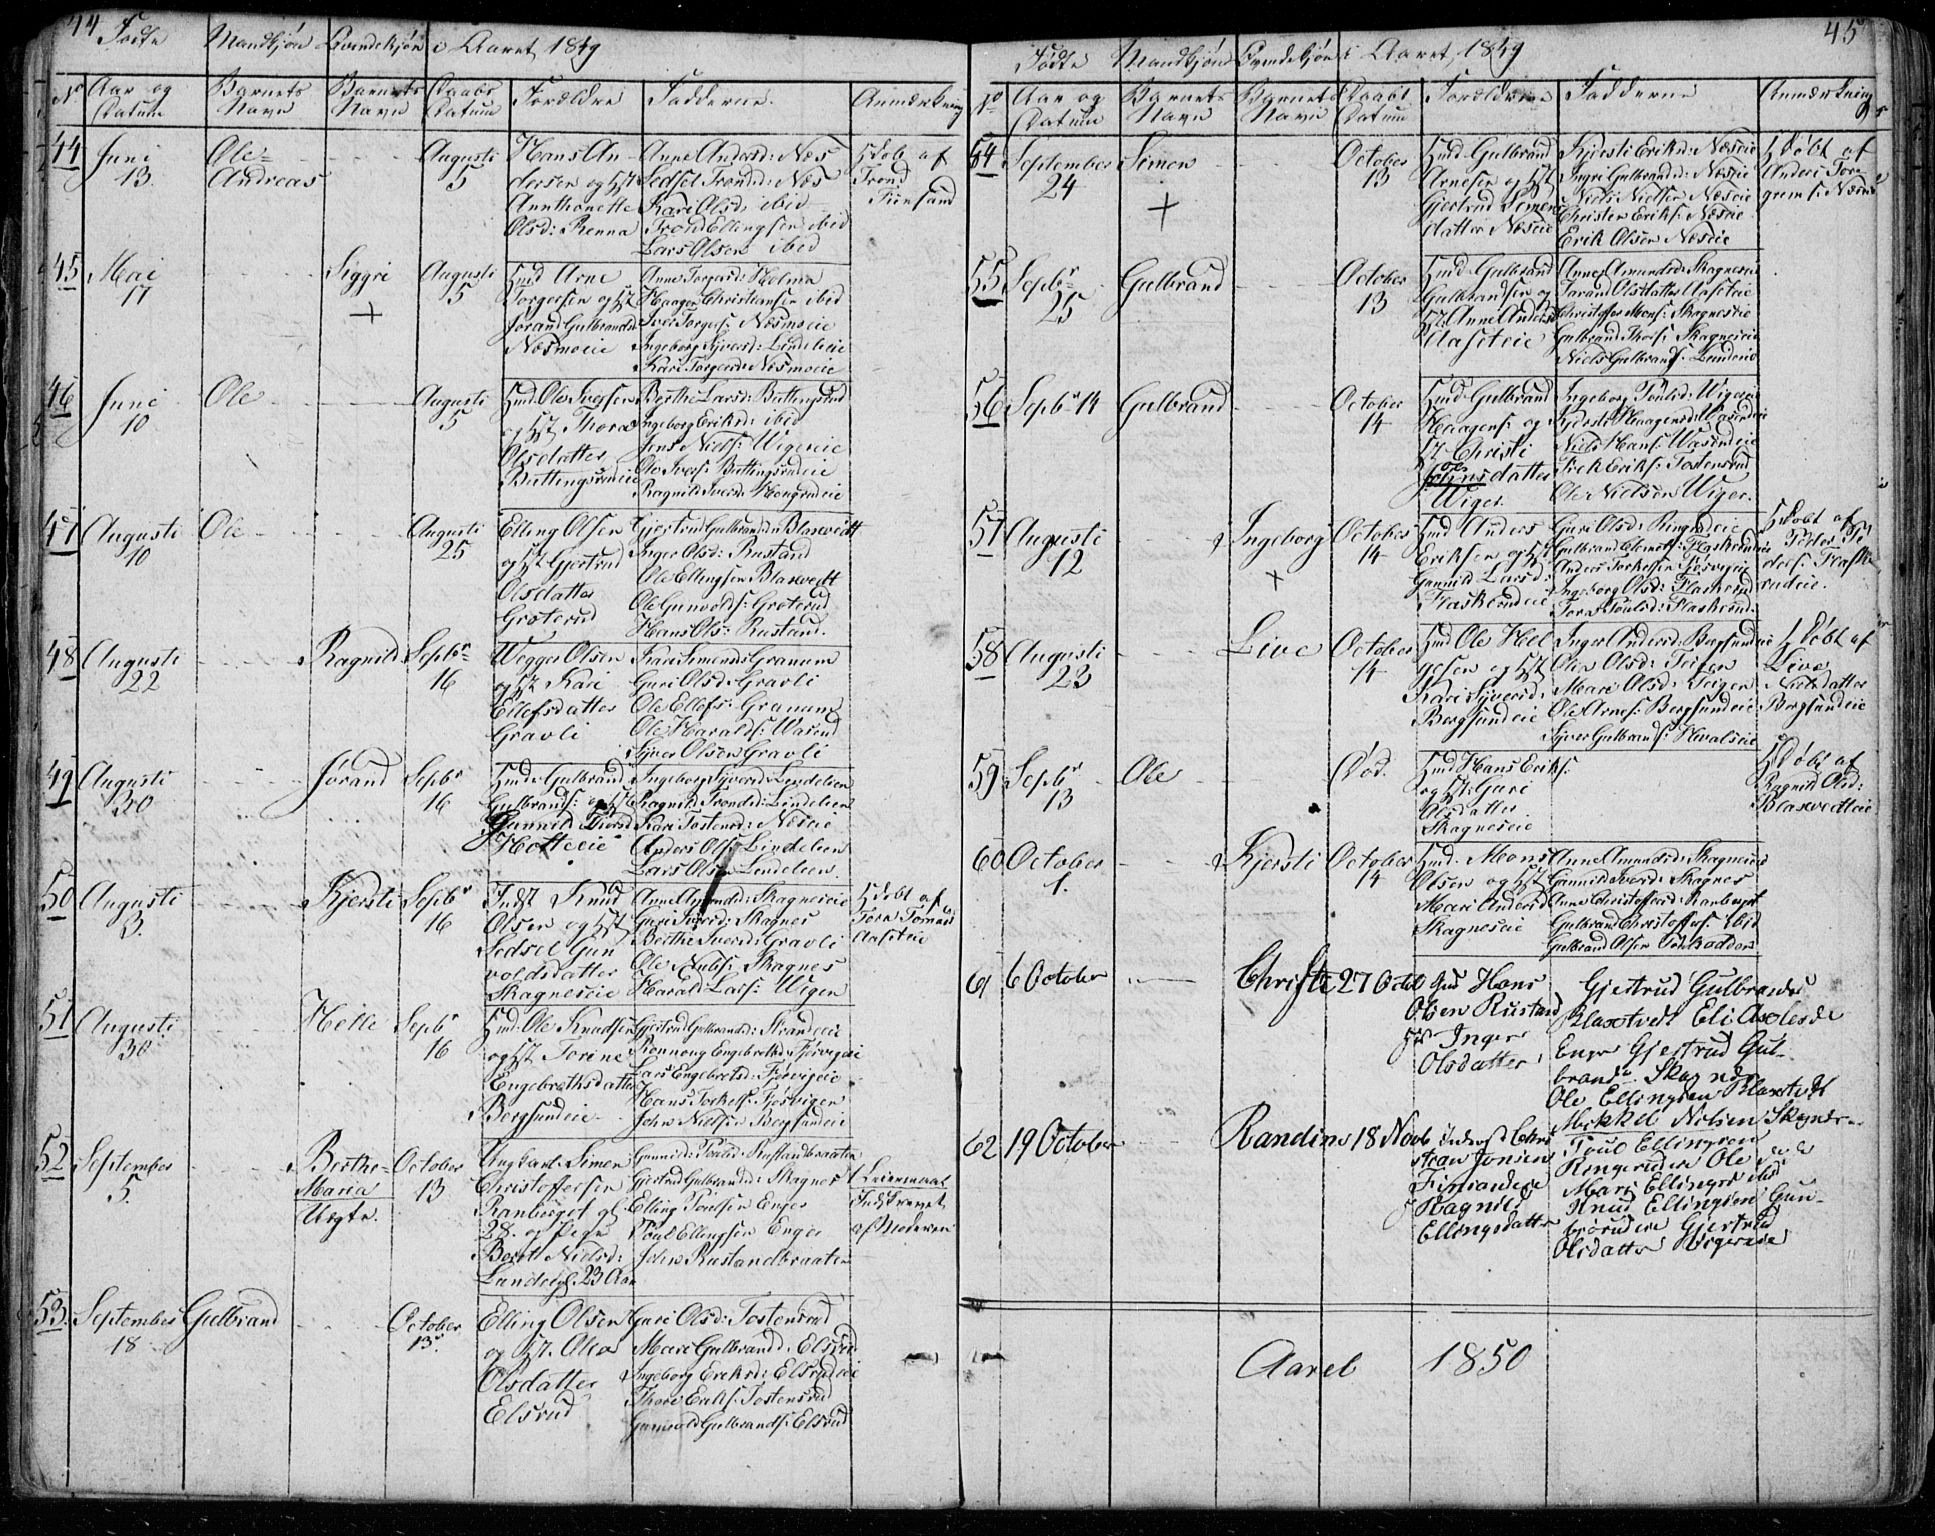 44
Fødte Mandkjøn Qvindekjøn i Aaret 1849
No Aar og Datum Barnets Navn Barnets Navn Daabs Datum Forældre Fadderne Anmærkning
44 Juni 13. Ole Andreas Augusti 5
Hans An-
dersen og H
Annthonette
Olsd: Renna
Anne Andersd: Næs
Sedsel Trondsd: Næs
Kari Olsd: ibid
Trond Ellingsen ibid
Lars Olsen ibid
Hdøbt af
Trond
45 Mai 17 Siggri + Augusti 5
Hmd Arne
Torgersen og H
Jørand Gulbrandsd
Næsmoeie
Haagen Christiansen ibid
Iver Torgers: Næsmoeie
Ingeborg Syvers: Lindelieie
Kari Torgersd: Næsmoeie
46 Juni 10 Ole Augusti 5
Hmd Ole
og H Thora
Olsdatter
Buttingsrudeie
Berthe Larsd: Buttingsrud
Ingeborg Eriksd: ibid
Jens Niels: Wigereie
Ole Ivers: Buttingsrudeie
Ragnild Iversd:
47 Augusti 10 Ole Augusti 25
Elling Olsen
og H Gjertrud
Olsdatter
Grøterud
Gjertrud Gulbrandsd: Blaxvedt
Inger Olsd: Rustand
Ole Ellingsen Blaxvedt
Ole Gunvolds: Grøterud
Hans Ols: Rustand.
48 Augusti 22 Ragnild Sepbr 16
Wegger Olsen
og H Kari
Ellefsdatter
Gravli
Kari Simensd Granum
Guri Olsd: Gravli
Ole Ellefs: Granum
Ole Haralds: Wasend
Syver Olsen Gravli
49 Augusti 30 Jørand Sepbr 16
Hmd: Gulbrand
Gulbrands: og H
Gunnild
Ingeborg Syversd: Lindelien
Ragnild Trondsd: Lindelien
Kari Tostensd: Næseie
Anders Ols: Lindelien
Lars Olsen Lindelien.
50 Augusti 3. Kjersti Sepbr 16
Indst Knud
Olsen og H
Sedsel Gun
voldsdatter
Skagneseie
Anne Amundsd: Skagneseie
Guri Iversd: Skagnes
Berthe Iversd: Gravli
Ole Knuds: Skagnes
Harald Lars: Wigen
Hdøbt af
Aaseteie
51 Augusti 30 Helle Sepbr 16
Hmd: Ole Knudsen
og H Torine
Engebrethsdatter
Bergsundeie
Gjertrud Gulbrandsd: Strandeie
Rønnoug Engebrethsd: Fjørvigeie
Lars Engebrets: Fjørvigeie
Hans Torkels: Fjøsvigen
John Nielsen Bergsundeie
52 September 5. Berthe Maria Uægte. October 13
Ungkarl Simen
Christoffersen
Ranberget gl:
28. og Pige
Berett Nielsd:
gl 23 Aar
Gunnild: Poulsd: Rustandbraaten
Gjertrud Gulbrandsd: Skagnes
Elling Poulsen Enger
Poul Ellingsen Enger
John Rustandbraaten
1 Leiermaal
Indskrevet
af Moderen
53. September 18 Gulbrand October 13.
Elling Olsen
og H. Olea
Olsdatter
Elsrud
Guri Olsd: Tostensrud
Mari Gulbrandsd: Elsrud
Ingeborg Eriksd: Elsrudeie
Thore Eriks: Tostensrud
Gunvold Gulbrands: Elsrud
45
Fødte Mandkjøn Qvindekjøn i Aaret 1849
No Aar og Datum Barnets Navn Barnets Navn Daabs Datum Forældrene Fadderne Anmærkning
54 September 24 Simen + October 13
Hmd Gulbrand
Arnesen og H
Gjertrud Simens
datter Næseie
Kjersti Eriksd: Næseie
Ingri Gulbrandsd: Næseie
Niels Nielsen Næseie
Christen Eriks: Næseie
Erik Olsen Næseie
Hdøbt af
Anders Tor-
55 Sepbr 25 Gulbrand October 13
Hmd Gulbrand
Gulbrandsen og
H Anne Andersd
Aaseteie
Anne Amundsd: Skagneseie
Jørand Olsdatter Aaseteie
Christoffer Mons: Skagneseie
Gulbrand Thors: Skagneseie
Niels Gulbrands: Lundeie
56 Sepbr 14 Gulbrand October 14
Hmd Gulbrand
Haagens: og
H Christi
Johnsdatter
Wiger.
Ingeborg Poulsd: Wigereie
Kjersti Haagensd: Wasendeie
Niels Hans: Wasendeie
Erik Eriks: Tostensrud
Ole Nielsen Wiger.
57 Augusti 12 Ingeborg + October 14
Hmd Anders
Eriksen og H
Gunnild Larsd:
Flaskerudeie
Guri Olsd: Ringrudeie
Anders Torkelsen Fjøsvigeie
Ingeborg Olsd: Flaskerud
Tora Poulsd: Flaskerud.
Hdøbt af
58 Augusti 23 Live October 14
Hmd Ole Hel
gesen og H
Kari Syversd:
Bergsundeie
Inger Andersd: Bergsundeie
Olia Olsd: Teigen
Mari Olsd: Teigen
Ole Arnes: Bergsundeie
Syver Gulbrands: Hevalseie
Hdøbt af
Live
Nielsdatter
Bergsundeie
59 Sepbr 13 Ole Død.
Hmd Hans Eriks:
og H: Guri
Olsdatter
Skagneseie
Hdøbt af
Ragnild Olsd:
Blaxvedteie
60 October 1. Kjersti October 14
Hmd. Mons
Olsen og H
Mari Andersd
Skagneseie
Anne Amundsd: Skagneseie
Gunnild Iversd: Skagnes
Anne Christoffersd: Ranberget
Gulbrand Christoffers: ibid
Gulbrand Olsen
61 6 October Christi 27 Octob
Hans
Olsen Rustand
Inger
Olsdatter
Gjertrud Gulbrandsd
Blaxtvedt Eli Axelsd
Enger Gjertrud Gul-
brandsd Skagnes
Ole Ellingsen Blaxtvedt
Mikkel Nilsen Skagnes
62 19 October Randine 18 Novb
Inderst Chri
stian Jonsen
Ragnild
Ellingsdatter
Poul Ellingsen
Ringerudeie Ole
Mari Ellingsd ibd
Knud Ellingsen Gun-
Gjertrud
Olsdatter Wigereie
Aaret 1850